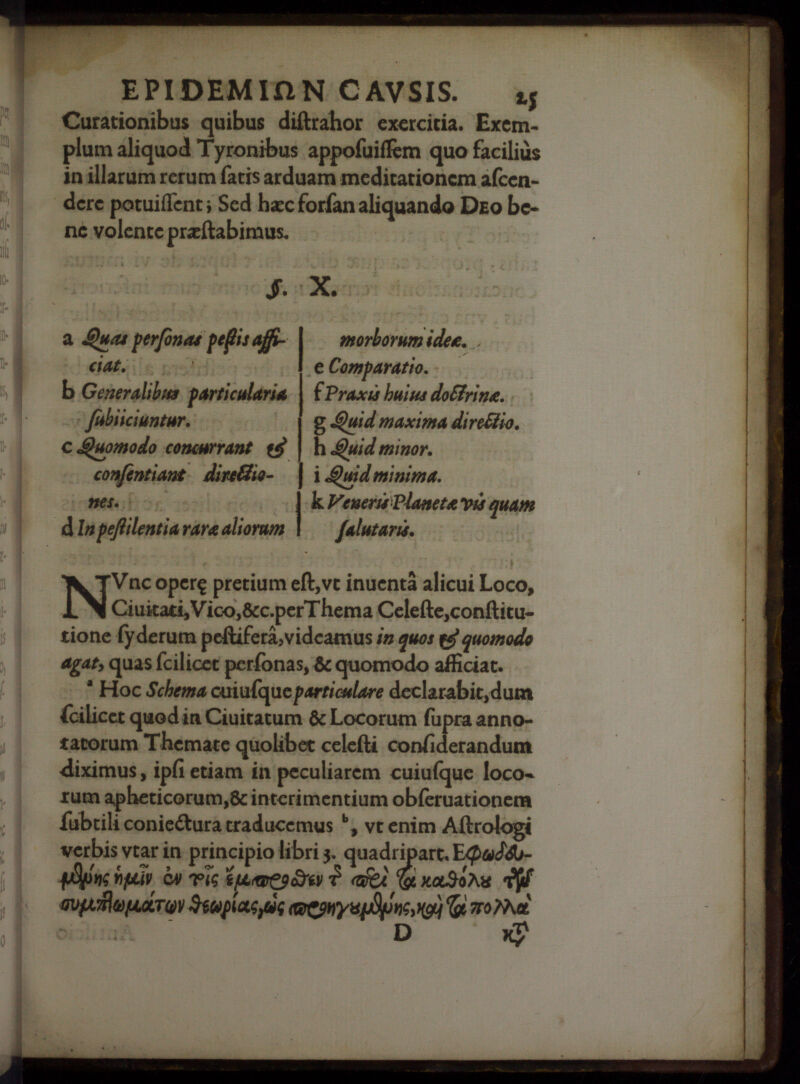 EPIDEMIΩN CAVSIS. 25
Curationibus quibus diſtrahor exercitia. Exem-
plum aliquod Tyronibus appoſuiſſem quo faciliùs
in illarum rerum ſatis arduam meditationem aſcen-
dere potuiſſent; Sed hæc forſan aliquando DEO be-
nè volente præſtabimus.
§. X.
a Quas perſonas peſtis affi-
ciat.
b Generalibus particularia
ſubiiciuntur.
c Quomodo concurrant &
conſentiant directio-
nes.
d In peſtilentia raræ aliorum
morborum ideæ.
e Comparatio.
f Praxis huius doctrinæ.
g Quid maxima directio.
h Quid minor.
i Quid minima.
k Veneris Planetæ vis quam
ſalutaris.
NVnc operę pretium eſt, vt inuentâ alicui Loco,
Ciuitati, Vico, &c. per Thema Celeſte, conſtitu-
tione ſyderum peſtiferâ, videamus in quos & quomodo
agat, quas ſcilicet perſonas, & quomodo afficiat.
a Hoc Schema cuiuſque particulare declarabit, dum
ſcilicet quod in Ciuitatum & Locorum ſupra anno-
tatorum Themate quolibet celeſti conſiderandum
diximus, ipſi etiam in peculiarem cuiuſque loco-
rum apheticorum, & interimentium obſeruationem
ſubtili coniectura traducemus b, vt enim Aſtrologi
verbis vtar in principio libri 3. quadripart. Ἐφωδευ-
μένης ἡμῖν ἐν τοῖς ἔμπροσθεν τ περὶ τὰ καθόλου τῶν
συμπτωμάτων θεωρίας, ὡς προηγουμένης, καὶ τὰ πολλὰ
D κτ